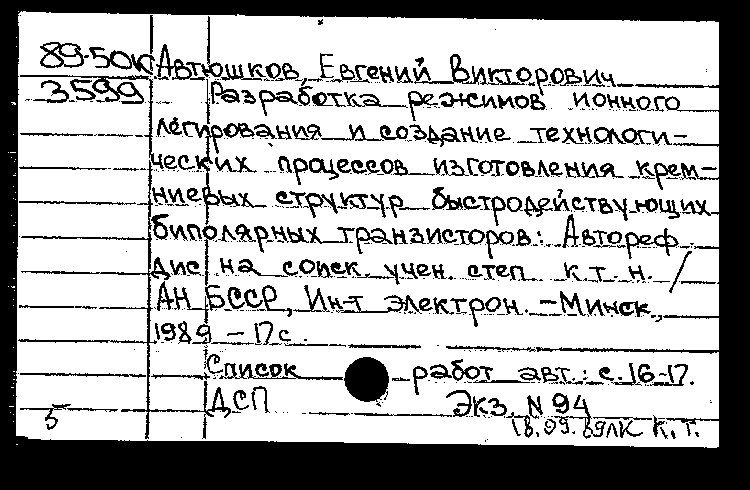 89-50К Автюшков, Евгений Викторович
3599 Разработка режимов ионного
легирования и создание технологи-
ческих процессов изготовления крем-
ниевых структур быстродействующих
биполярных транзисторов: Автореф.
дис на соиск. учен. степ к.т.н. /
АН БССР, Ин-т электрон. -Минск,
1989 - 17с.
Список работ авт.: с.16-17.
ДСП Экз. N 94
5 18.09.89лк К.Т.